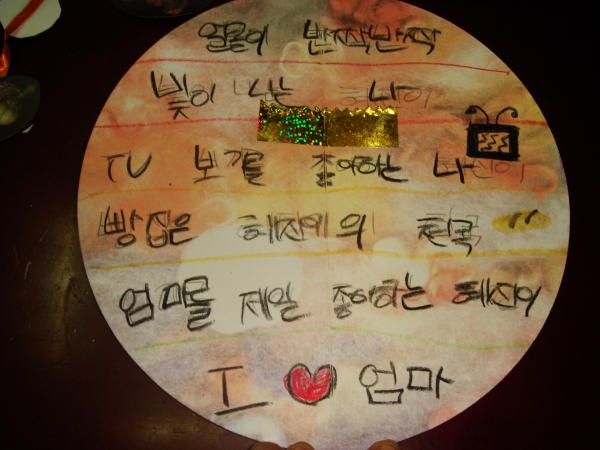 얼굴이 반짝반짝
빛이 나는 나
TV 보기를 좋아하는 나
빵집은 혜진이의 천국
엄마를 제일 좋아하는 혜진이
I ♥ 엄마